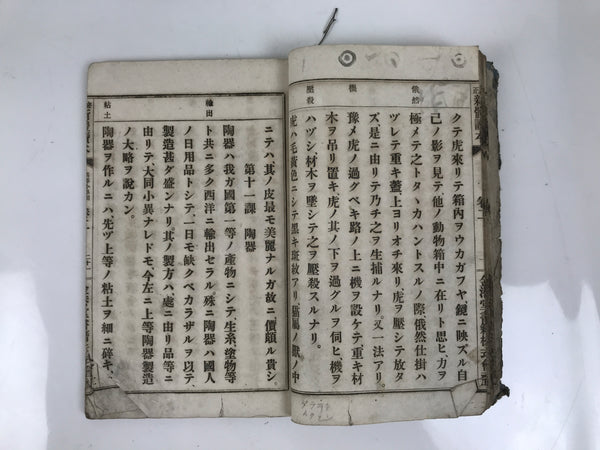 俄然
機
壓殺
クテ虎來リテ箱內ヲウカガフヤ、鏡ニ映ズル自
己ノ影ヲ見テ他ノ動物箱中ニ在リト思ヒ、力ヲ
極メテ之トタヽカハントスルノ際俄然仕掛ハ
ヅレテ重キ蓋上ヨリオチ來リ、虎ヲ壓シテ放タ
ズ是ニ由リテ乃チ之ヲ生捕ルナリ。又一法アリ。
豫メ虎ノ過グベキ路ノ上ニ機ヲ設ケテ重キ材
木ヲ吊リ置キ虎ノ其ノ下ヲ過グルヲ伺ヒ機ヲ
ハヅシ材木ヲ墜シテ之ヲ壓殺スルナリ。
虎ハ毛黃色ニシテ黑キ斑紋アリ。猫屬ノ獸ノ中
ニテハ其ノ皮最モ美麗ナルガ故ニ價頗ル貴シ。
第十一課 陶器
輸出
粘土
陶器ハ我ガ國第一等ノ產物ニシテ、生糸、塗物等
ト共ニ多ク西洋ニ輸出セラル殊ニ陶器ハ國人
ノ日用品トシテ、一日モ缺クベカラザルヲ以テ、
製造甚ダ盛ンナリ。其ノ製方ハ處ニ由リ品等ニ
由リテ、大同小異ナレドモ今左ニ上等陶器製造
ノ大略ヲ說カン。
陶器ヲ作ルニハ先ヅ上等ノ粘土ヲ細ニ碎キ、